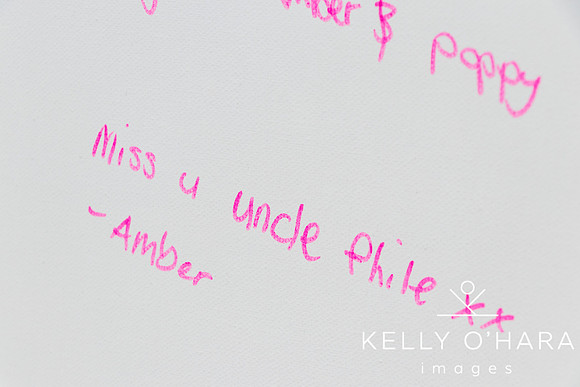 & poppy
Miss u uncle Phile xx
-Amber
KELLY O'HARA
images